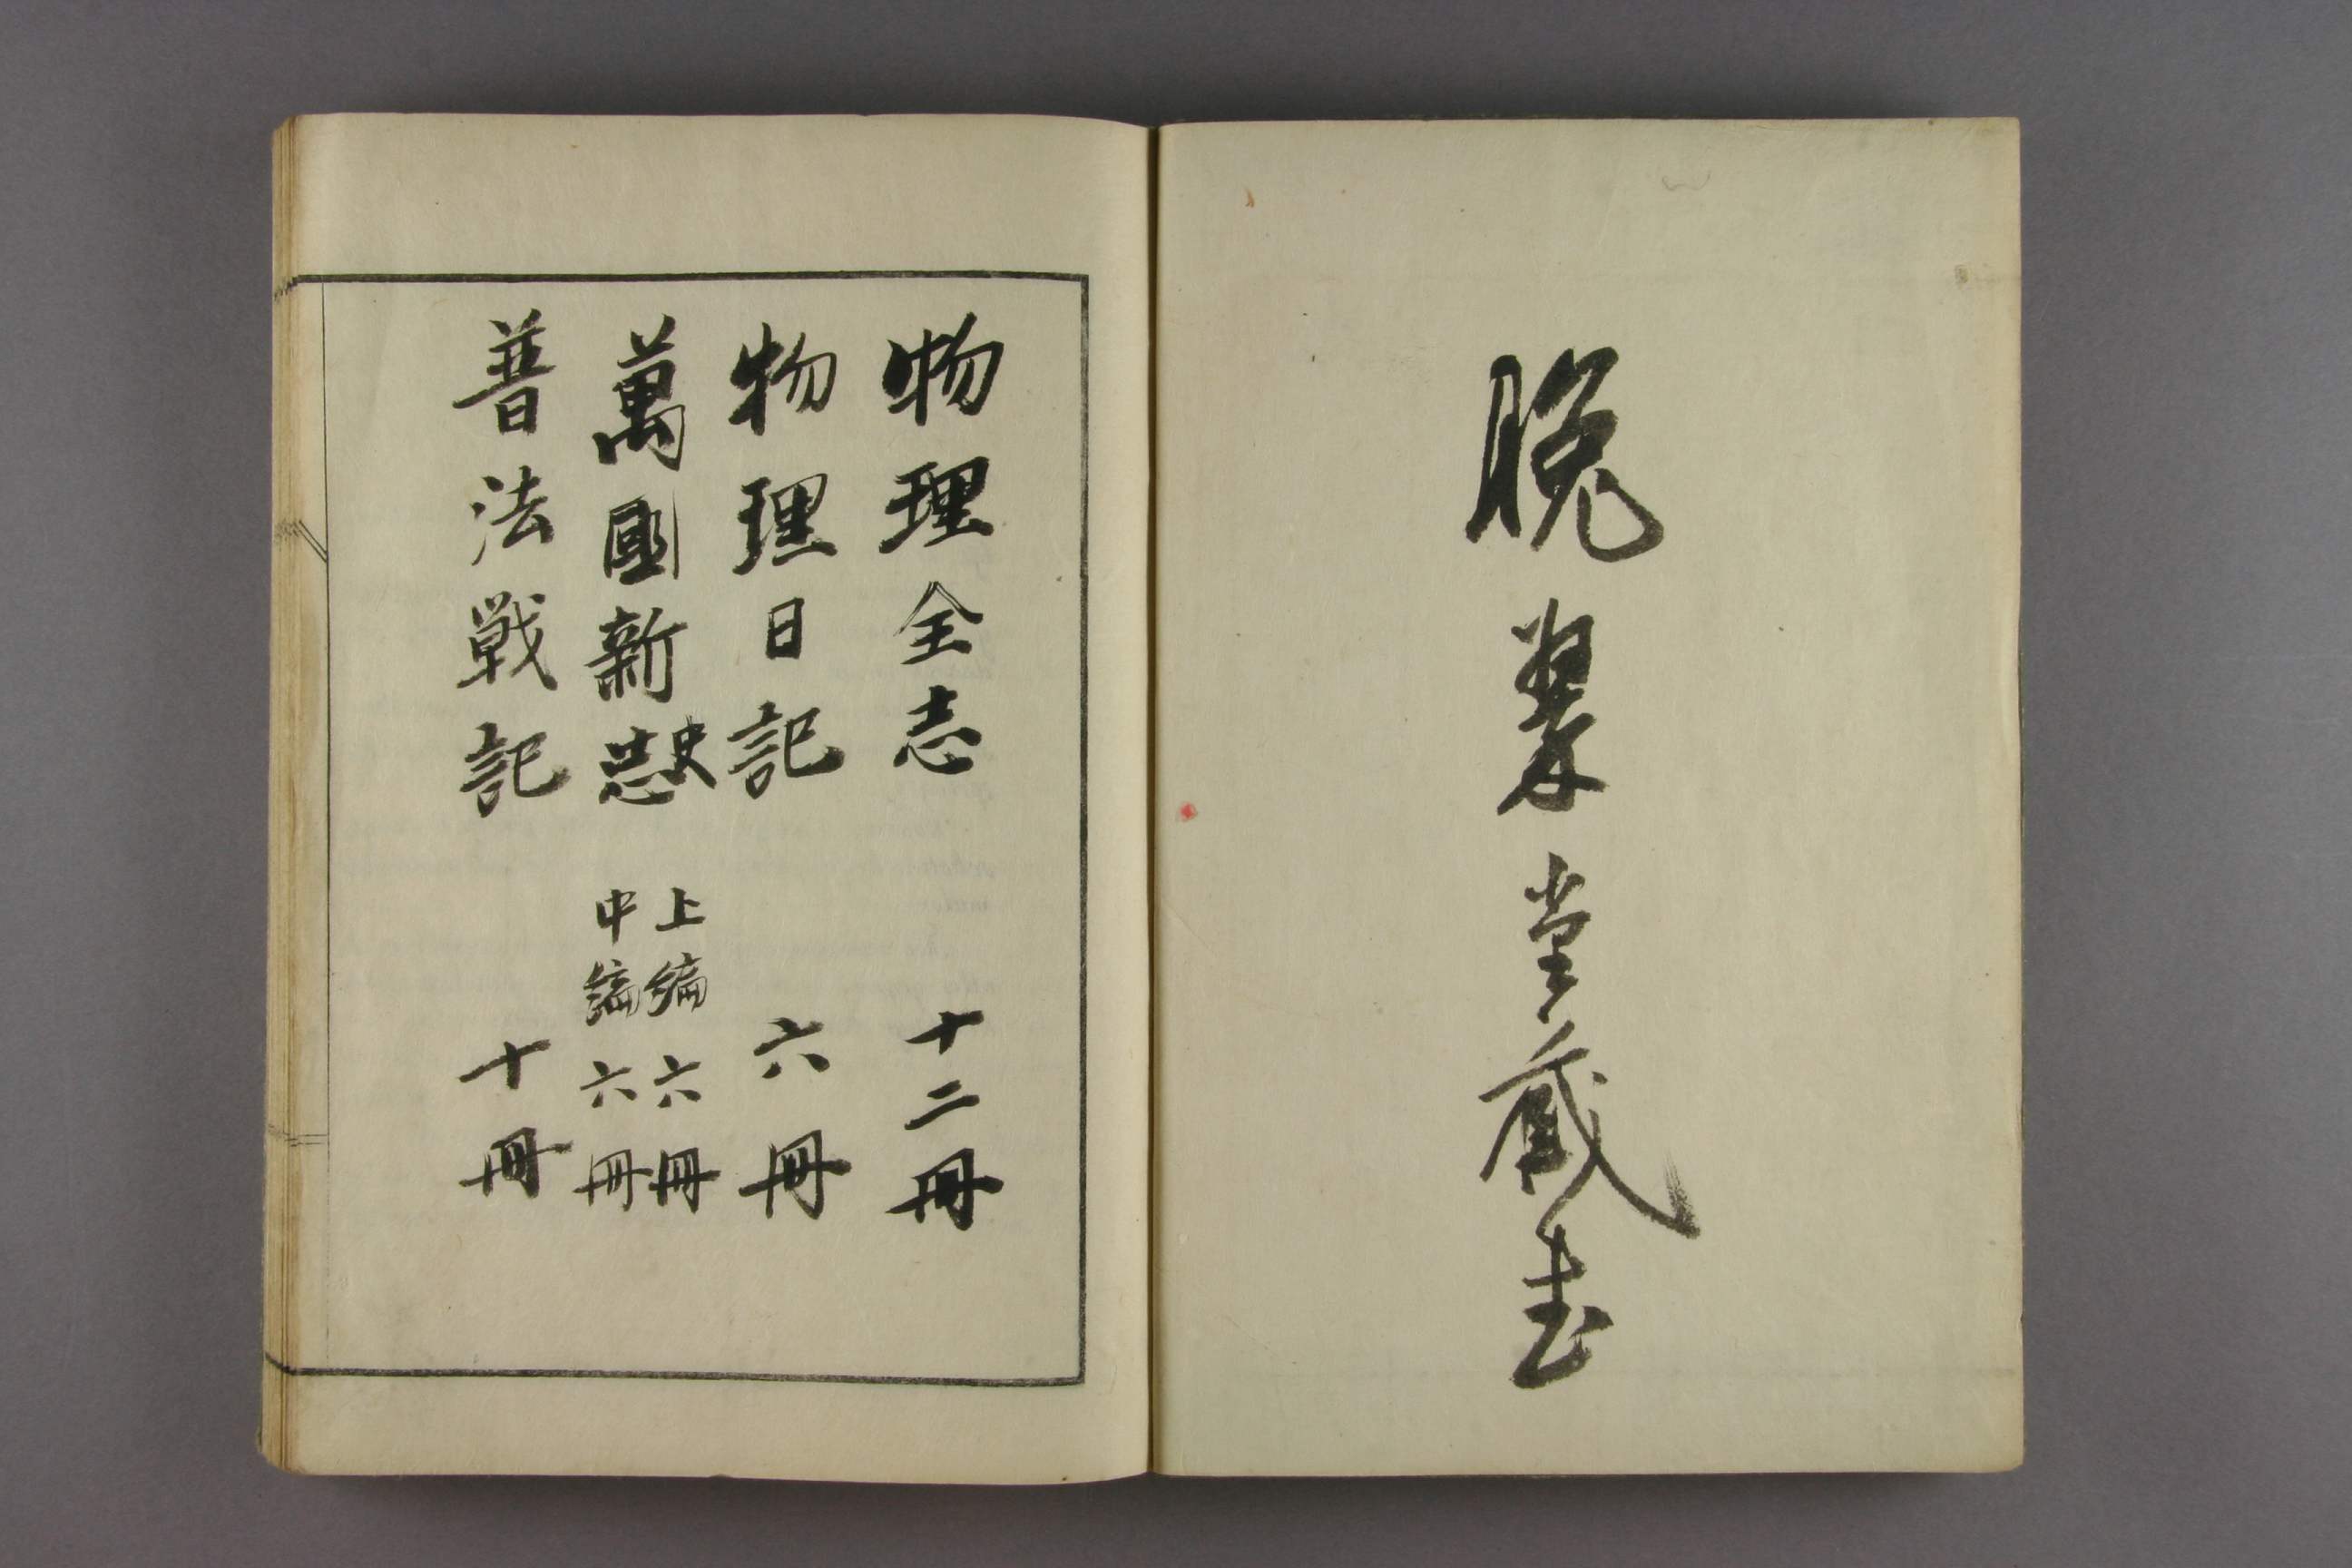 晩翠堂蔵書
物理全志 十二冊
物理日記 六冊
萬國新志史 上編六冊
中編六冊
普法戦記 十冊